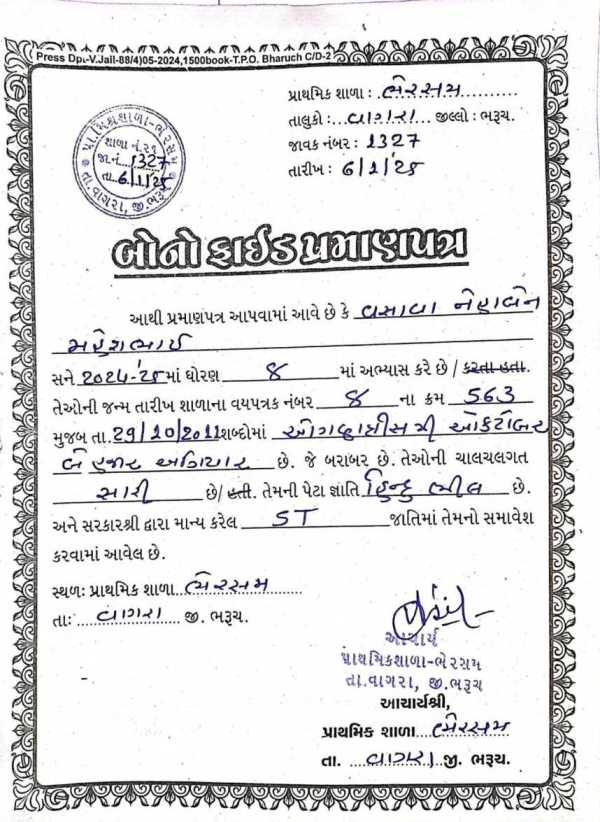 Press Dpt-V.Jail-88/4)05-2024,1500book-T.P.O. Bharuch C/D-2
પ્રાથમિક શાળા : ભેરસમ
તાલુકો : વાગરા જીલ્લો : ભરૂચ.
જાવક નંબર : 1327
તારીખ : 6/1/25
પ્રાથમિકશાળા-ભેરસમ
શાળા નં.૨૧
જા.નં. 1327
તા. 6/1/25
તા.વાગરા, જી.ભરૂચ
બોનો ફાઈડ પ્રમાણપત્ર
આથી પ્રમાણપત્ર આપવામાં આવે છે કે વસાવા નેહાબેન
મહેશભાઈ
સને 2024-'25 માં ધોરણ 8 માં અભ્યાસ કરે છે / કરતા હતા.
તેઓની જન્મ તારીખ શાળાના વયપત્રક નંબર 8 ના ક્રમ 563
મુજબ તા. 29/10/2011 શબ્દોમાં ઓગણત્રીસમી ઓક્ટોબર
બે હજાર અગિયાર છે. જે બરાબર છે. તેઓની ચાલચલગત
સારી છે/ હતી. તેમની પેટા જ્ઞાતિ હિન્દુ ભીલ છે.
અને સરકારશ્રી દ્વારા માન્ય કરેલ ST જાતિમાં તેમનો સમાવેશ
કરવામાં આવેલ છે.
સ્થળ: પ્રાથમિક શાળા ભેરસમ
તા: વાગરા જી. ભરૂચ.
આચાર્ય
પ્રાથમિકશાળા-ભેરસમ
તા.વાગરા, જી.ભરૂચ
આચાર્યશ્રી,
પ્રાથમિક શાળા ભેરસમ
તા. વાગરા જી. ભરૂચ.